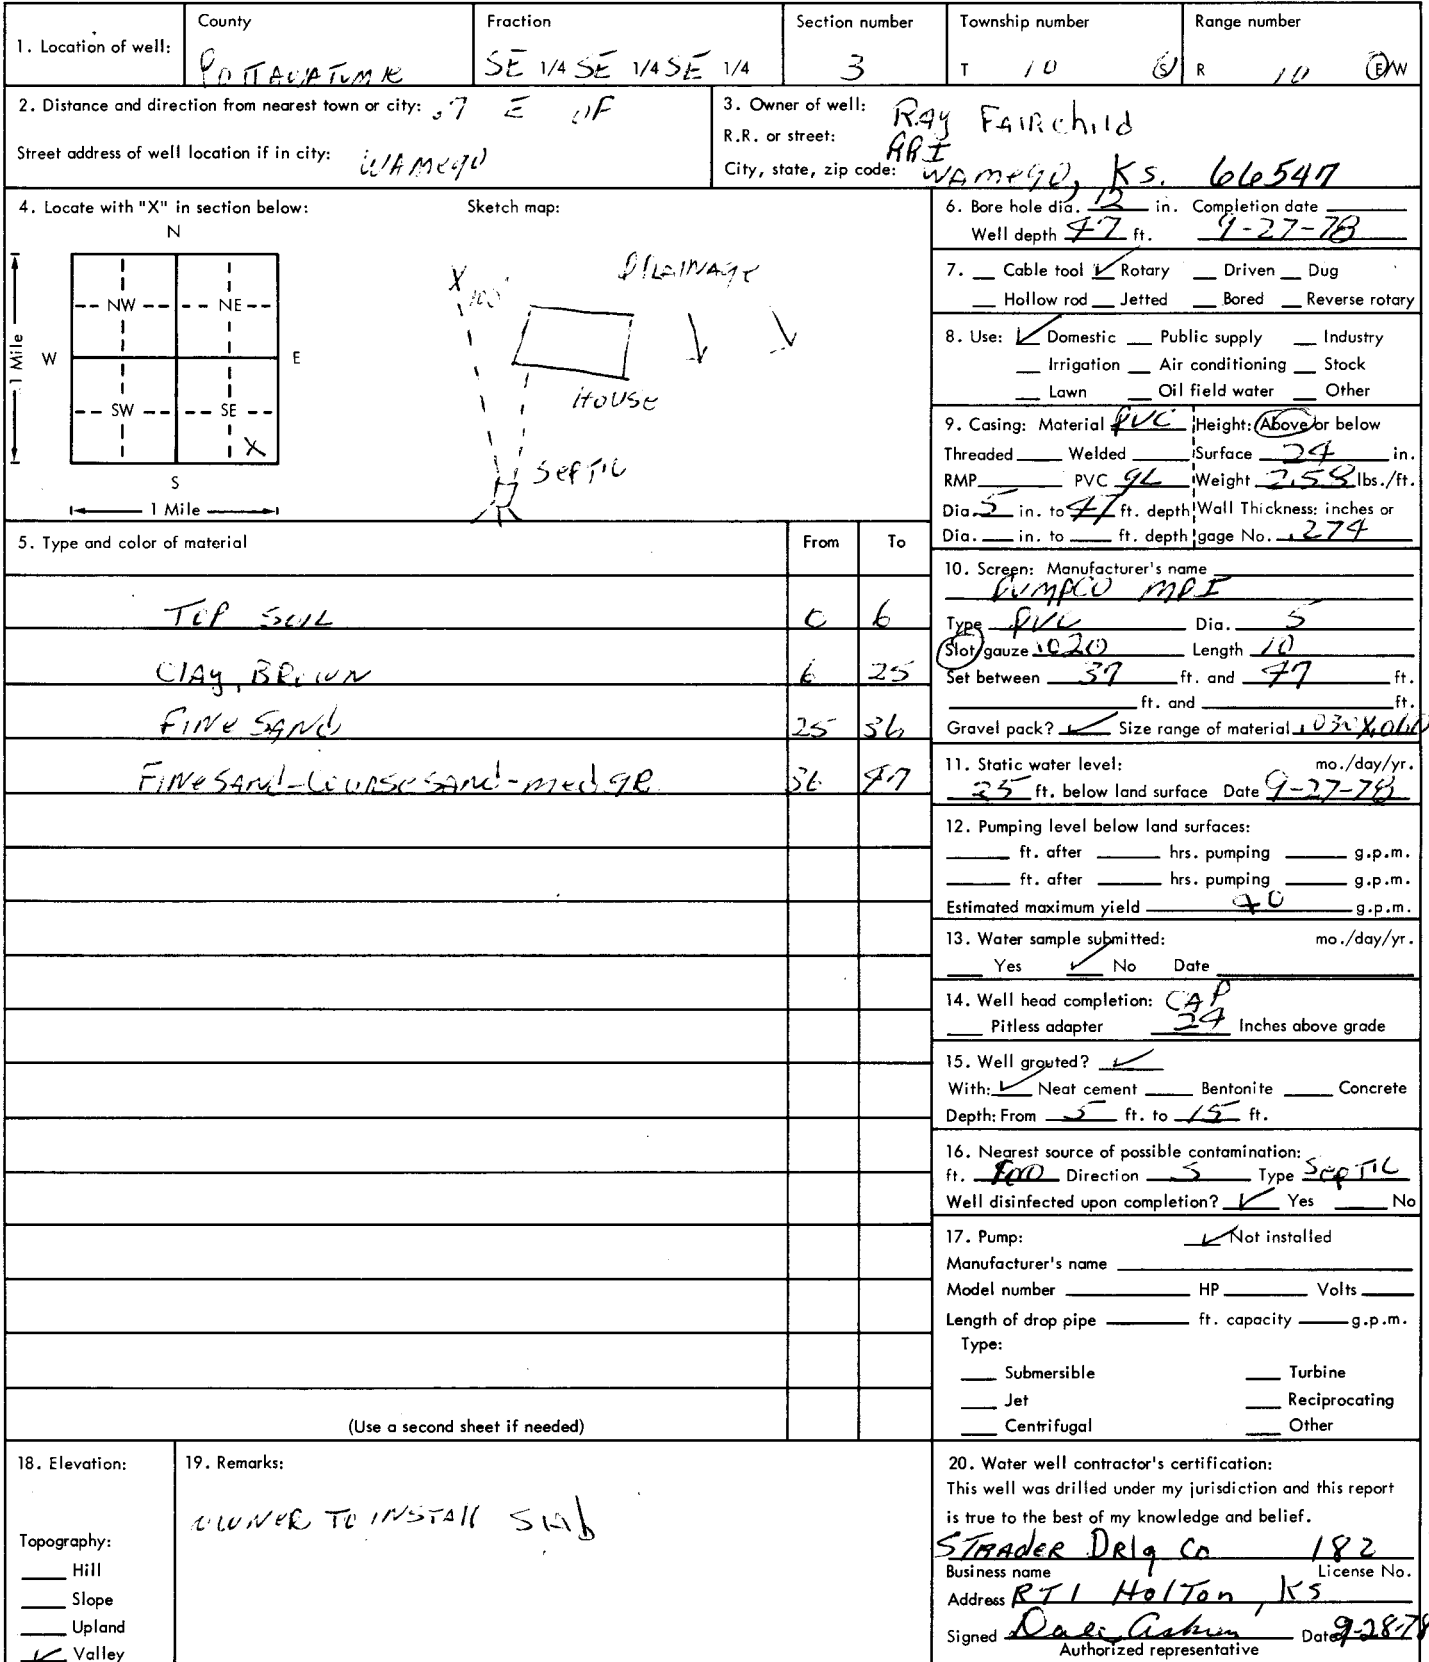 1. Location of well:
County
POTTAWATOMIE
Fraction
SE 1/4 SE 1/4 SE 1/4
Section number
3
Township number
T 10 S
Range number
R 10 E/W
2. Distance and direction from nearest town or city: .7 E OF
Street address of well location if in city: WAMEGO
3. Owner of well: RAY FAIRchild
R.R. or street: RR1
City, state, zip code: WAMEGO, Ks. 66547
4. Locate with "X" in section below:
Sketch map:
N
NW NE
W E
SW SE
X
S
1 Mile
1 Mile
X 100'
DRAINAGE
HOUSE
SEPTIC
5. Type and color of material From To
TOP SOIL 0 6
CLAY, BROWN 6 25
FINE SAND 25 36
FINE SAND-COURSE SAND-med gR 36 47
(Use a second sheet if needed)
6. Bore hole dia. 12 in. Completion date
Well depth 47 ft. 9-27-78
7. Cable tool ✓ Rotary Driven Dug
Hollow rod Jetted Bored Reverse rotary
8. Use: ✓ Domestic Public supply Industry
Irrigation Air conditioning Stock
Lawn Oil field water Other
9. Casing: Material PVC Height: Above or below
Threaded Welded Surface 24 in.
RMP PVC GL Weight 2.58 lbs./ft.
Dia. 5 in. to 47 ft. depth Wall Thickness: inches or
Dia. in. to ft. depth gage No. .274
10. Screen: Manufacturer's name
MPI
Type PVC Dia. 5
Slot/gauze .020 Length 10
Set between 37 ft. and 47 ft.
ft. and ft.
Gravel pack? ✓ Size range of material .030X.060
11. Static water level: mo./day/yr.
25 ft. below land surface Date 9-27-78
12. Pumping level below land surfaces:
ft. after hrs. pumping g.p.m.
ft. after hrs. pumping g.p.m.
Estimated maximum yield 40 g.p.m.
13. Water sample submitted: mo./day/yr.
Yes ✓ No Date
14. Well head completion: CAP
Pitless adapter 24 Inches above grade
15. Well grouted? ✓
With: ✓ Neat cement Bentonite Concrete
Depth: From 5 ft. to 15 ft.
16. Nearest source of possible contamination:
ft. 100 Direction S Type SEPTIC
Well disinfected upon completion? ✓ Yes No
17. Pump: ✓ Not installed
Manufacturer's name
Model number HP Volts
Length of drop pipe ft. capacity g.p.m.
Type:
Submersible Turbine
Jet Reciprocating
Centrifugal Other
18. Elevation:
Topography:
Hill
Slope
Upland
✓ Valley
19. Remarks:
OWNER TO INSTALL SlAb
20. Water well contractor's certification:
This well was drilled under my jurisdiction and this report
is true to the best of my knowledge and belief.
STRADER DRlg Co 182
Business name License No.
Address RT1 HolTon, KS
Signed Date 9-28-78
Authorized representative